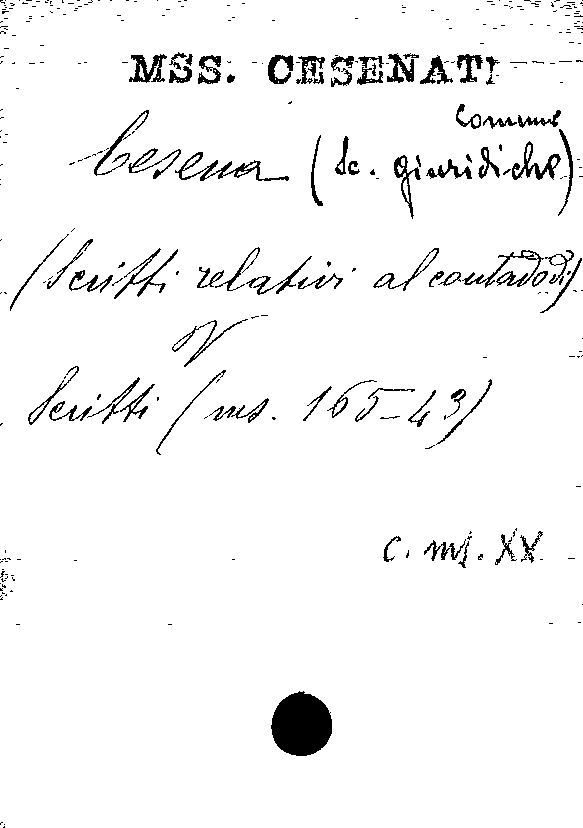 MSS. CESENATI
Comune
Cesena (Sc. giuridiche)
(Scritti relativi al contado di)
V
Scritti (ms. 165-43)
c. ms. XX